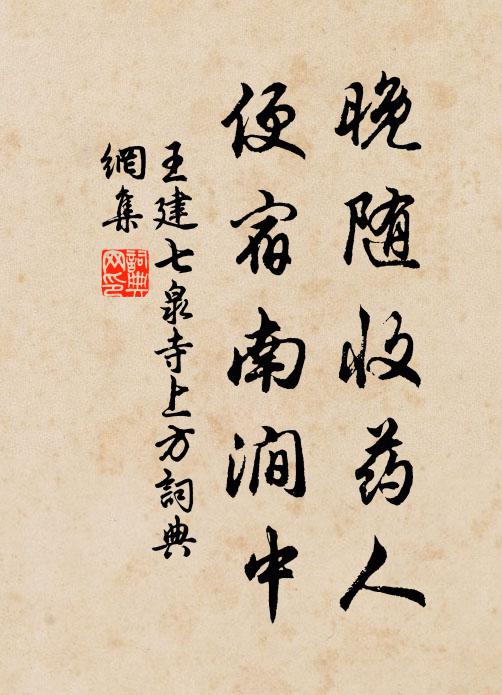 晚随收药人
便宿南涧中
王建七泉寺上方詞典
網集
詞典
网印